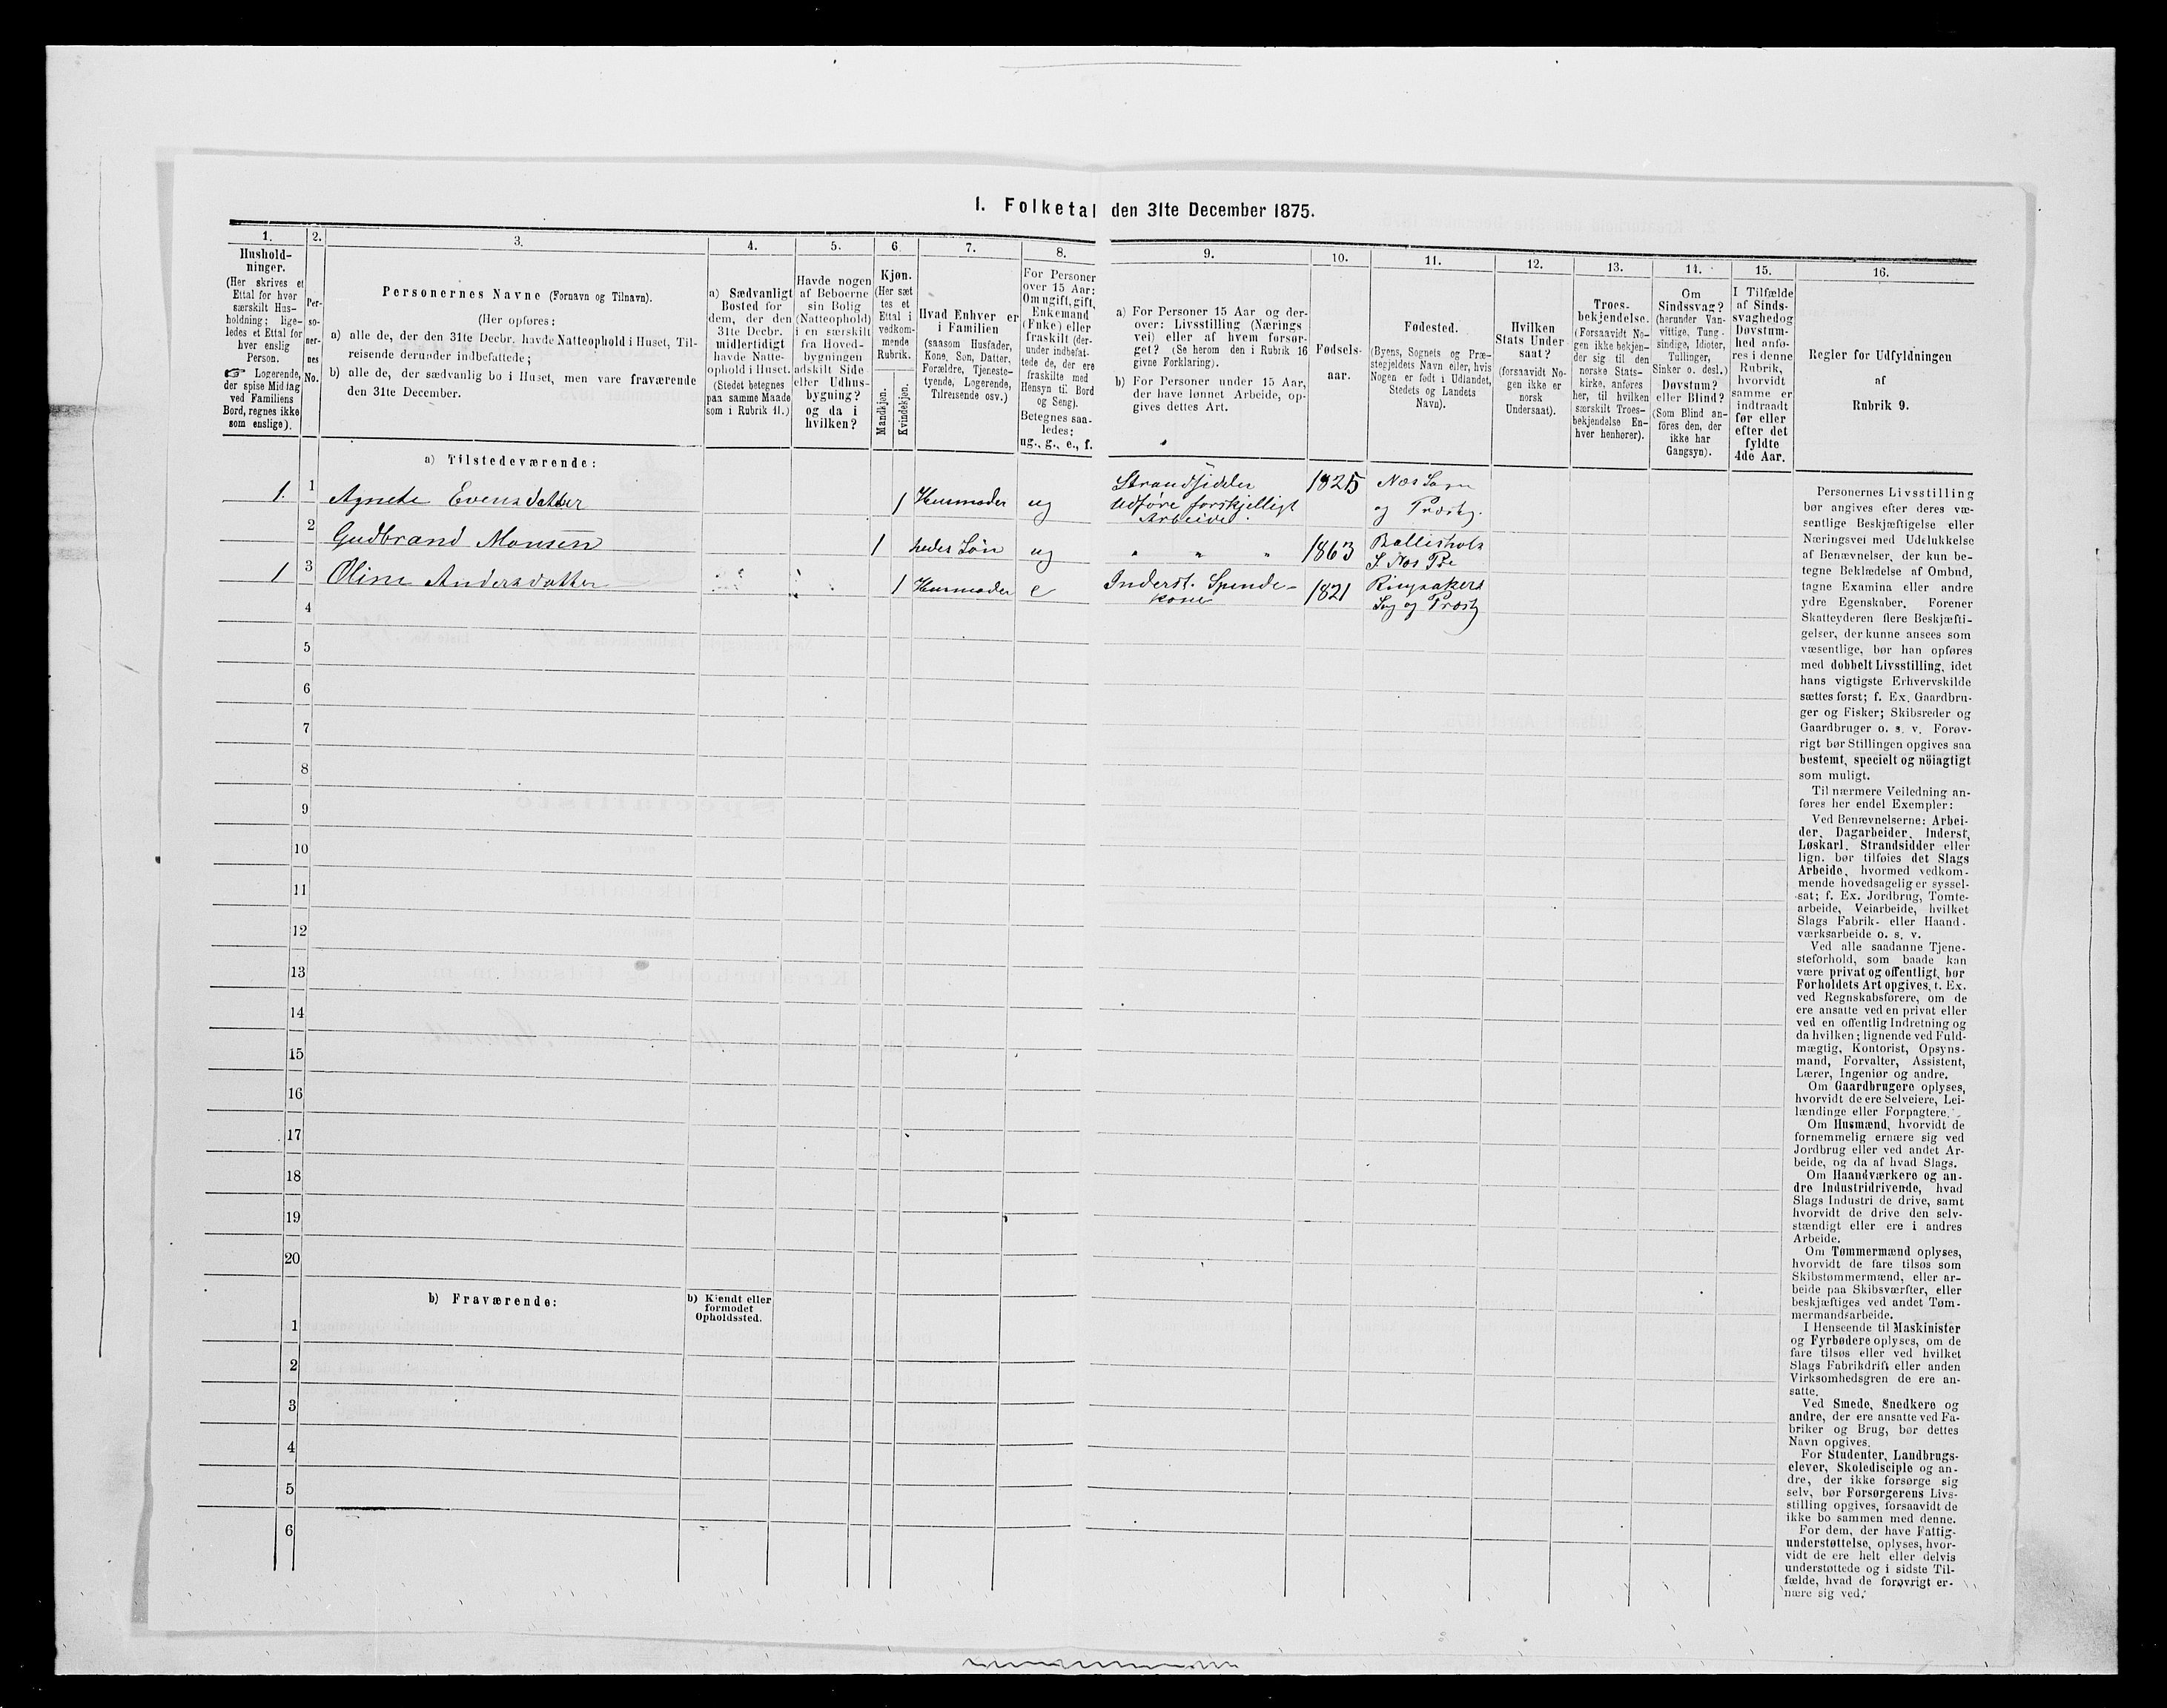 1. Folketal den 31te December 1875.
1.
Hushold-
ninger.
(Her skrives et
Ettal for hver
særskilt Hus-
holdning; lige-
ledes et Ettal for
hver enslig
Person.
☞ Logerende,
der spise Middag
ved Familiens
Bord, regnes ikke
som enslige).
2.
Per-
so-
ner-
nes
No.
3.
Personernes Navne (Fornavn og Tilnavn).
(Her opføres:
a) alle de, der den 31te Decbr. havde Natteophold i Huset, Til-
reisende derunder indbefattede;
b) alle de, der sædvanlig bo i Huset, men vare fraværende
den 31te December.
4.
a) Sædvanligt
Bosted for
dem, der den
31te Decbr.
midlertidigt
havde Natte-
ophold i Huset.
(Stedet betegnes
paa samme Maade
som i Rubrik 11.)
5.
Havde nogen
af Beboerne
sin Bolig
(Natteophold)
i en særskilt
fra Hoved-
bygningen
adskilt Side
eller Udhus-
bygning?
og da i
hvilken?
6
Kjøn.
(Her sæt
tes et
Ettal i
vedkom-
mende
Rubrik.
Mandkjøn.
Kvindekjøn.
7.
Hvad Enhver er
i Familien
(saasom Husfader,
Kone, Søn, Datter,
Forældre, Tjeneste-
tyende, Logerende,
Tilreisende osv.)
8.
For Personer
over 15 Aar:
Om ugift, gift,
Enkemand
(Enke) eller
fraskilt (der-
under indbefat-
tede de, der ere
fraskilte med
Hensyn til Bord
og Seng).
Betegnes saa-
ledes:
ug., g., e., f.
9.
a) For Personer 15 Aar og der-
over: Livsstilling (Nærings
vei) eller af hvem forsør-
get? (Se herom den i Rubrik 16
givne Forklaring).
b) For Personer under 15 Aar,
der have lønnet Arbeide, op-
gives dettes Art.
10.
Fødsels-
aar.
11.
Fødested.
(Byens, Sognets og Præ-
stegjeldets Navn eller, hvis
Nogen er født i Udlandet,
Stedets og Landets
Navn).
12.
Hvilken
Stats Under
saat?
(forsaavidt No-
gen ikke er
norsk
Undersaat).
13.
Troes-
bekjendelse.
(Forsaavidt No-
gen ikke bekjen-
der sig til den
norske Stats-
kirke, anføres
her, til hvilken
særskilt Troes-
bekjendelse En-
hver henhører).
14.
Om
Sindssvag?
(herunder Van-
vittige, Tung-
sindige, Idioter,
Tullinger,
Sinker o. desl.)
Døvstum?
eller Blind?
(Som Blind an-
föres den, der
ikke har
Gangsyn).
15.
I Tilfælde
af Sinds-
svaghed og
Døvstum-
hed anfø-
res i denne
Rubrik,
hvorvidt
samme er
indtraadt
før eller
efter det
fyldte
4de Aar.
16.
Regler for Udfyldningen
af
Rubrik 9.
a) Tilstedeværende:
1. 1 Agnete Evensdatter 1 Husmoder ug Strandsidder 1825 Næs Sogn
Udføre forskjelligt og Præstg.
Arbeide.
2 Gudbrand Monsen 1 hedes Søn ug " " " 1863 Ballishols
S. Næs Pre
1 3 Oline Andersdatter 1 Husmoder e Inderst. Spinde- 1821 Ringsakers
kone Sog og Præstg
4
5
6
7
8
9
10
11
12
13
14
15
16
17
18
19
20
b) Fraværende:
b) Kjendt eller
formodet
Opholdssted.
1
2
3
4
5
6
Personernes Livsstilling
bør angives efter deres væ-
sentlige Beskjæftigelse eller
Næringsvei med Udelukkelse
af Benævnelser, der kun be-
tegne Beklædelse af Ombud,
tagne Examina eller andre
ydre Egenskaber. Forener
Skatteyderen flere Beskjæfti-
gelser, der kunne ansees som
væsentlige, bør han opføres
med dobbelt Livsstilling, idet
hans vigtigste Erhvervskilde
sættes først; f. Ex. Gaardbru-
ger og Fisker; Skibsreder og
Gaardbruger o. s. v. Forøv-
rigt bør Stillingen opgives saa
bestemt, specielt og nöiagtigt
som muligt.
Til nærmere Veiledning an-
føres her endel Exempler:
Ved Benævnelserne: Arbei-
der, Dagarbeider, Inderst,
Løskarl, Strandsidder eller
lign. bør tilføies det Slags
Arbeide, hvormed vedkom-
mende hovedsagelig er syssel-
sat; f. Ex. Jordbrug, Tomte-
arbeide, Veiarbeide, hvilket
Slags Fabrik- eller Haand-
værksarbeide o. s. v.
Ved alle saadanne Tjene-
steforhold, som baade kan
være privat og offentligt, bør
Forholdets Art opgives, f. Ex.
ved Regnskabsførere, om de
ere ansatte ved en privat eller
ved en offentlig Indretning og
da hvilken; lignende ved Fuld-
mægtig, Kontorist, Opsyns-
mand, Forvalter, Assistent,
Lærer, Ingeniør og andre.
Om Gaardbrugere oplyses,
hvorvidt de ere Selveiere, Lei-
lændinge eller Forpagtere.
Om Husmænd, hvorvidt de
fornemmelig ernære sig ved
Jordbrug eller ved andet Ar-
beide, og da af hvad Slags.
Om Haandværkere og an-
dre Industridrivende, hvad
Slags Industri de drive, samt
hvorvidt de drive den selv-
stændigt eller ere i andres
Arbeide.
Om Tømmermænd oplyses,
hvorvidt de fare tilsøs som
Skibstømmermænd, eller ar-
beide paa Skibsværfter, eller
beskjæftiges ved andet Tøm-
mermandsarbeide.
I Henseende til Maskinister
og Fyrbødere oplyses, om de
fare tilsøs eller ved hvilket
Slags Fabrikdrift eller anden
Virksomhedsgren de ere an-
satte.
Ved Smede, Snedkere og
andre, der ere ansatte ved Fa-
briker og Brug, bør dettes
Navn opgives.
For Studenter, Landbrugs-
elever, Skoledisciple og an-
dre, der ikke forsørge sig
selv, bør Forsørgerens Livs-
stilling opgives, forsaavidt de
ikke bo sammen med denne.
For dem, der have Fattig-
understøttelse, oplyses, hvor-
vidt de ere helt eller delvis
understøttede og i sidste Til-
fælde, hvad de forøvrigt er-
nære sig ved.